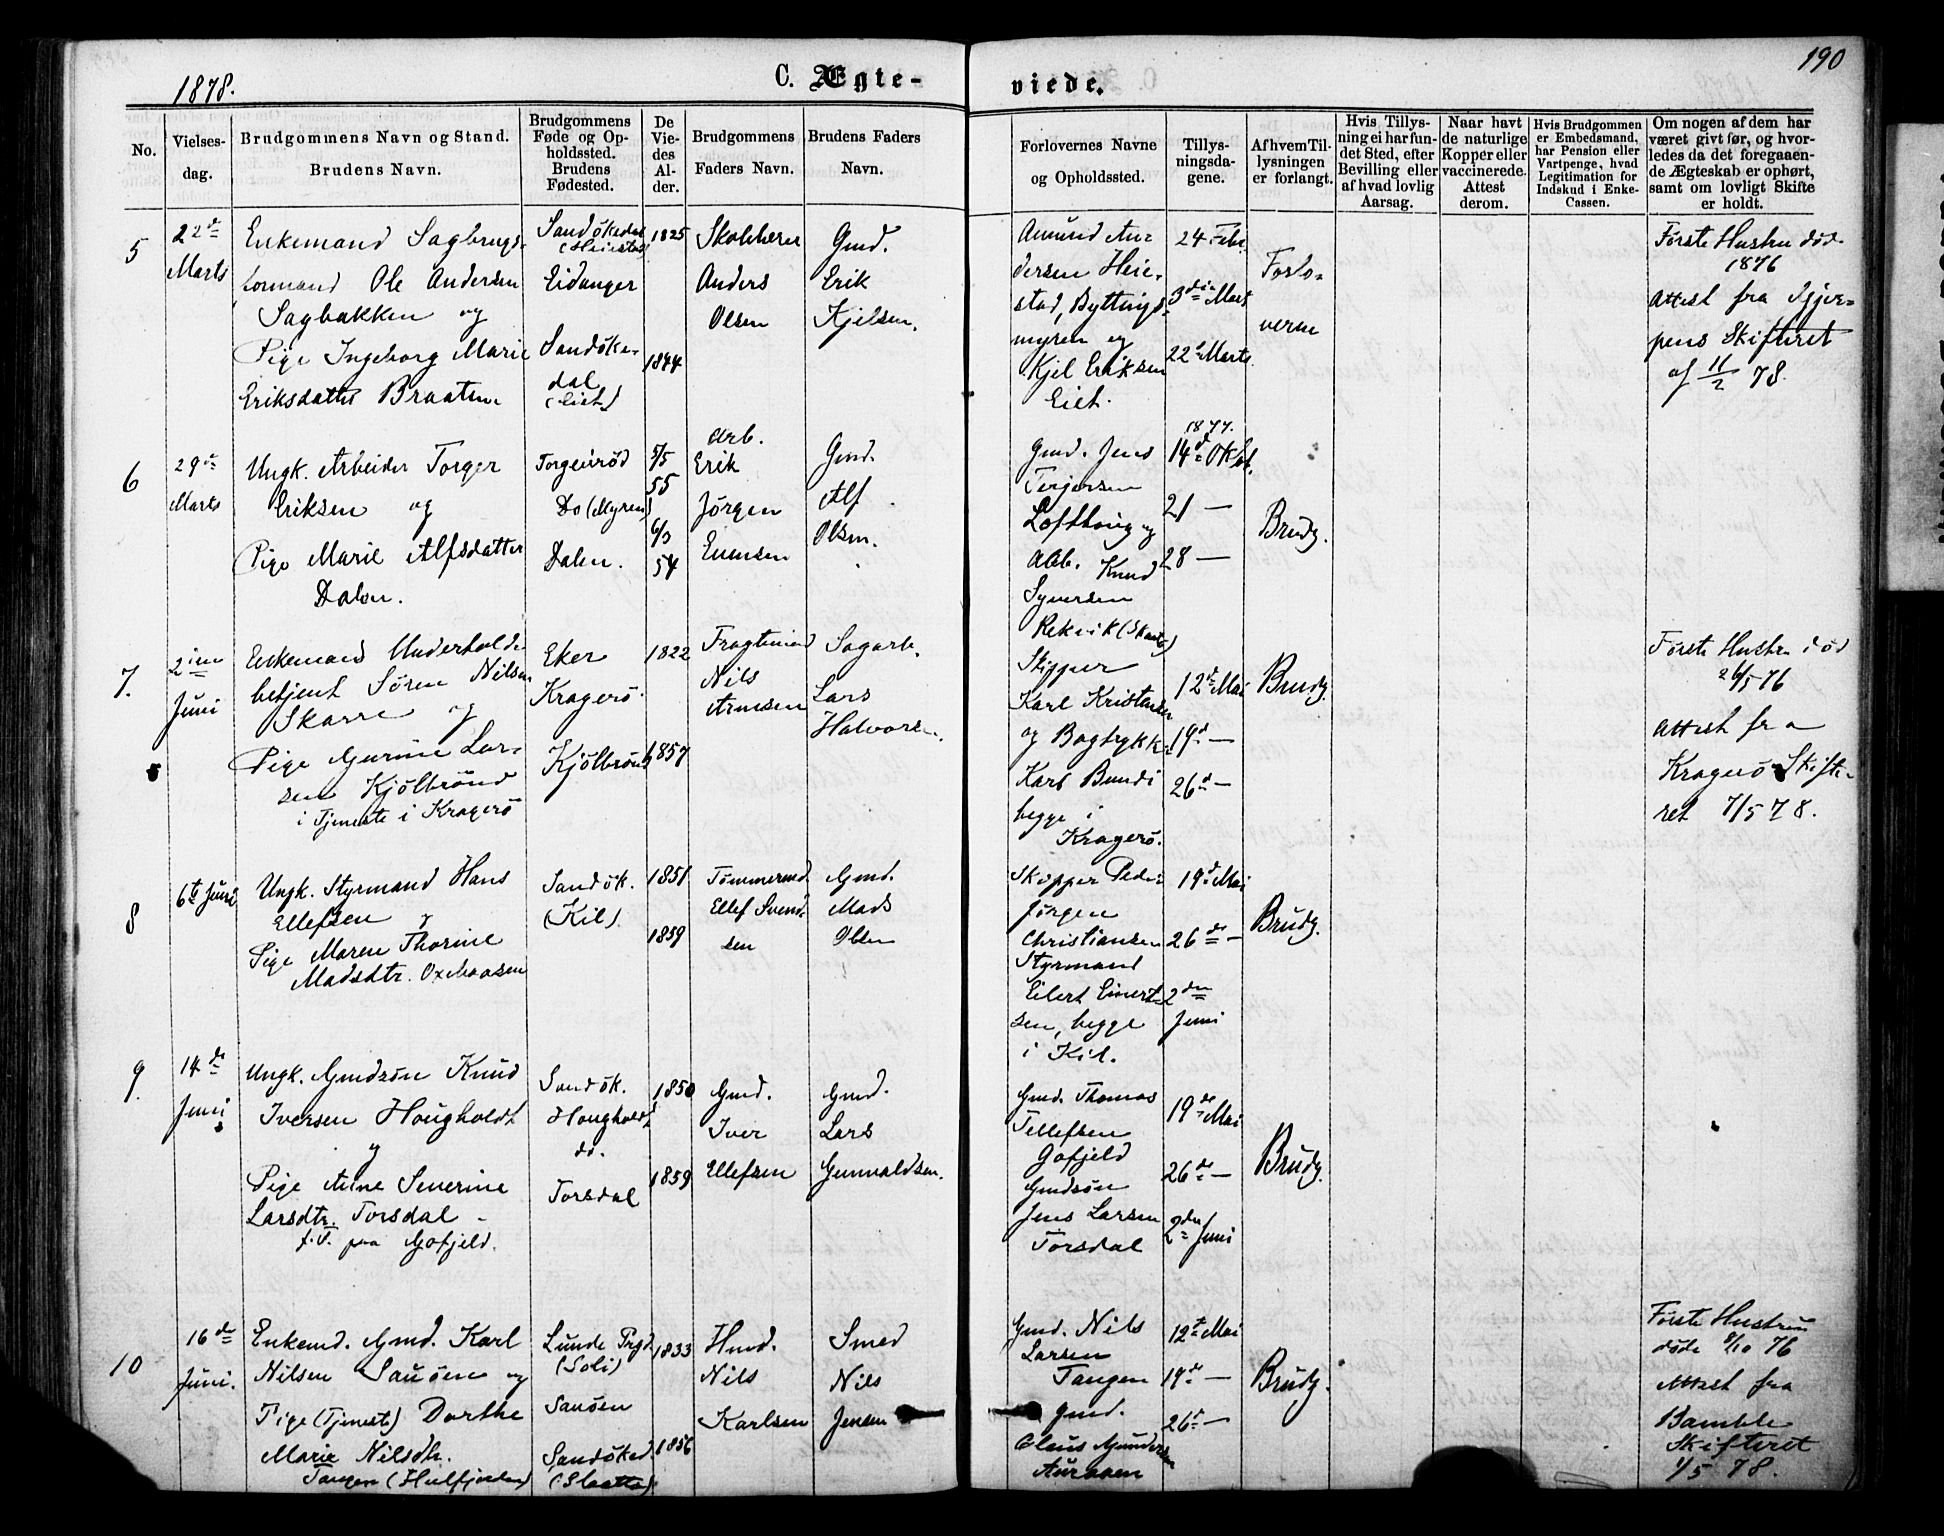 1878.
C. Ægte-
viede.
190
No.
Vielses-
dag.
Brudgommens Navn og Stand.
Brudens Navn.
Brudgommens
Føde og Op-
holdssted.
Brudens
Fødested.
De
Vie-
des
Al-
der.
Brudgommens
Faders Navn.
Brudens Faders
Navn.
Forlovernes Navne
og Opholdssted.
Tillys-
ningsda-
gene.
Af hvem Til-
lysningen
er forlangt.
Hvis Tillys-
ning ei har fun-
det Sted, efter
Bevilling eller
af hvad lovlig
Aarsag.
Naar havt
de naturlige
Kopper eller
vaccinerede.
Attest
derom.
Hvis Brudgommen
er Embedsmand,
har Pension eller
Vartpenge, hvad
Legitimation for
Indskud i Enke-
Cassen.
Om nogen af dem har
været givt før, og hvor-
ledes da det foregaaen-
de Ægteskab er ophørt,
samt om lovligt Skifte
er holdt.
5
22de
Marts
Enkemand Sagbrugs-
formand Ole Andersen
Sagbakken og
Pige Ingeborg Marie
Eriksdatter Braaten
Sandökedal
(Heiestad)
Eidanger
Sandöke-
dal
(Eiet)
1825
1844
Skoklerer
Anders
Olsen
Gmd.
Erik
Kjelsen.
Amund An-
dersen Heie-
stad, Byttings-
myren og
Kjel Eriksen
Eiet.
24 Febr.
3die Mart
22d Marts
Forlo-
verne
Første Hustru död
1876
Attest fra Gjer-
pens Skifteret
af 11/2 78.
6
29de
Marts
Ungk. Arbeider Torger
Eriksen og
Pige Marie Alfsdatter
Dalen.
Torgeirröd
Do (Myren)
Dalen.
5/5
55
6/3
54
Arb.
Erik
Jörgen
Evensen
Gmd.
Alf
Olsen.
Gmd. Jens
Terjersen
Lofthoug og
Abb. Knud
Syversen
Rekvik
1877.
14d Oktbr.
21 —
28 —
Brudg.
7.
2den
Juni
Enkemand Underholds-
betjent Sören Nilsen
Skarre og
Pige Gurine Lar-
sen Kjölbrönd
i Tjeneste i Kragerö
Eker
Kragerö.
Kjölbrönd
1822
1857
Fragtmand
Nils
Arnesen
Sagarb.
Lars
Halvorsen.
Skipper
Karl Kristensen
og Bogtrykker
Karl Bundi
begge i
Kragerö.
12d Mai
19d —
26d —
Brudg.
Første Hustru död
26/5 76
Attest fra
Kragerö Skifte-
ret 7/5 78.
8
6te Juni
Ungk. Styrmand Hans
Ellefsen og
Pige Maren Thorine
Madsdtr. Oxemaasen
Sandök.
(Kil).
1851
1859
Tömmermd.
Ellef Svend-
sen
Gmd.
Mads
Olsen
Skipper Peder
Jörgen
Christiansen
Styrmand
Eilert Einert-
sen, begge
i Kil.
19d Mai
26de —
2den
Juni
Brudg.
9.
14de
Juni
Ungk. Gmdsön Knud
Iversen Hougholdt
og
Pige Anne Severine
Larsdtr. Torsdal -
f. T. paa Gofjeld.
Sandök.
Hougholdt
dd.
Torsdal
1850
1859
Gmd.
Iver
Ellefsen
Gmd.
Lars
Gunnuldsen.
Gmd. Thomas
Tellefsen
Gofjeld
Gmdsön
Jens Larsen
Torsdal
19de Mai
26de —
2den Juni
Brudg.
10
16de
Juni.
Enkemd. Gmd. Karl
Nilsen Sauöen og
Pige (Tjeneste) Dorthe
Marie Nilsdtr.
Tangen
Lunde Prgd
(Soli)
Sauöen
Sandöked.
(Slaatta)
1833
1856
Hmd.
Nils
Karlsen
Smed
Nils
Jensen
Gmd. Nils
Larsen
Tangen
Gmd.
Claus Gundersen
Auraaen
12te Mai
19de —
26de —
Brudg.
Første Hustru
döde 8/10 76
Attest fra
Bamble
Skifteret
1/5 78.